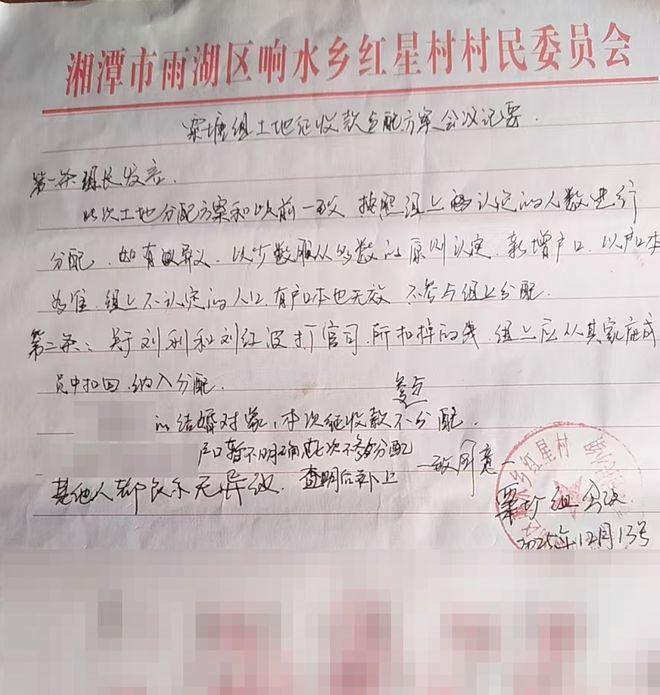 湘潭市雨湖区响水乡红星村村民委员会
栗塘组土地征收款分配方案会议记要.
第一条组长发言.
此次土地分配方案和以前一致 按照组上的认定的人数进行
分配,如有异议,以少数服从多数的原则认定,新增户口,以户口本
为准,组上不认定的人口,有户口本也无效 不参与组上分配.
第二条:关于刘利和刘红波打官司,所扣掉的钱,组上应从其家庭成
员中扣回,纳入分配.
参与
的结婚对象,本次征收款不分配.
户口暂不明确此次不参与分配
其他人都表示无异议. 查明后补上 一致同意
栗塘组会议
2025年12月13号
红星村